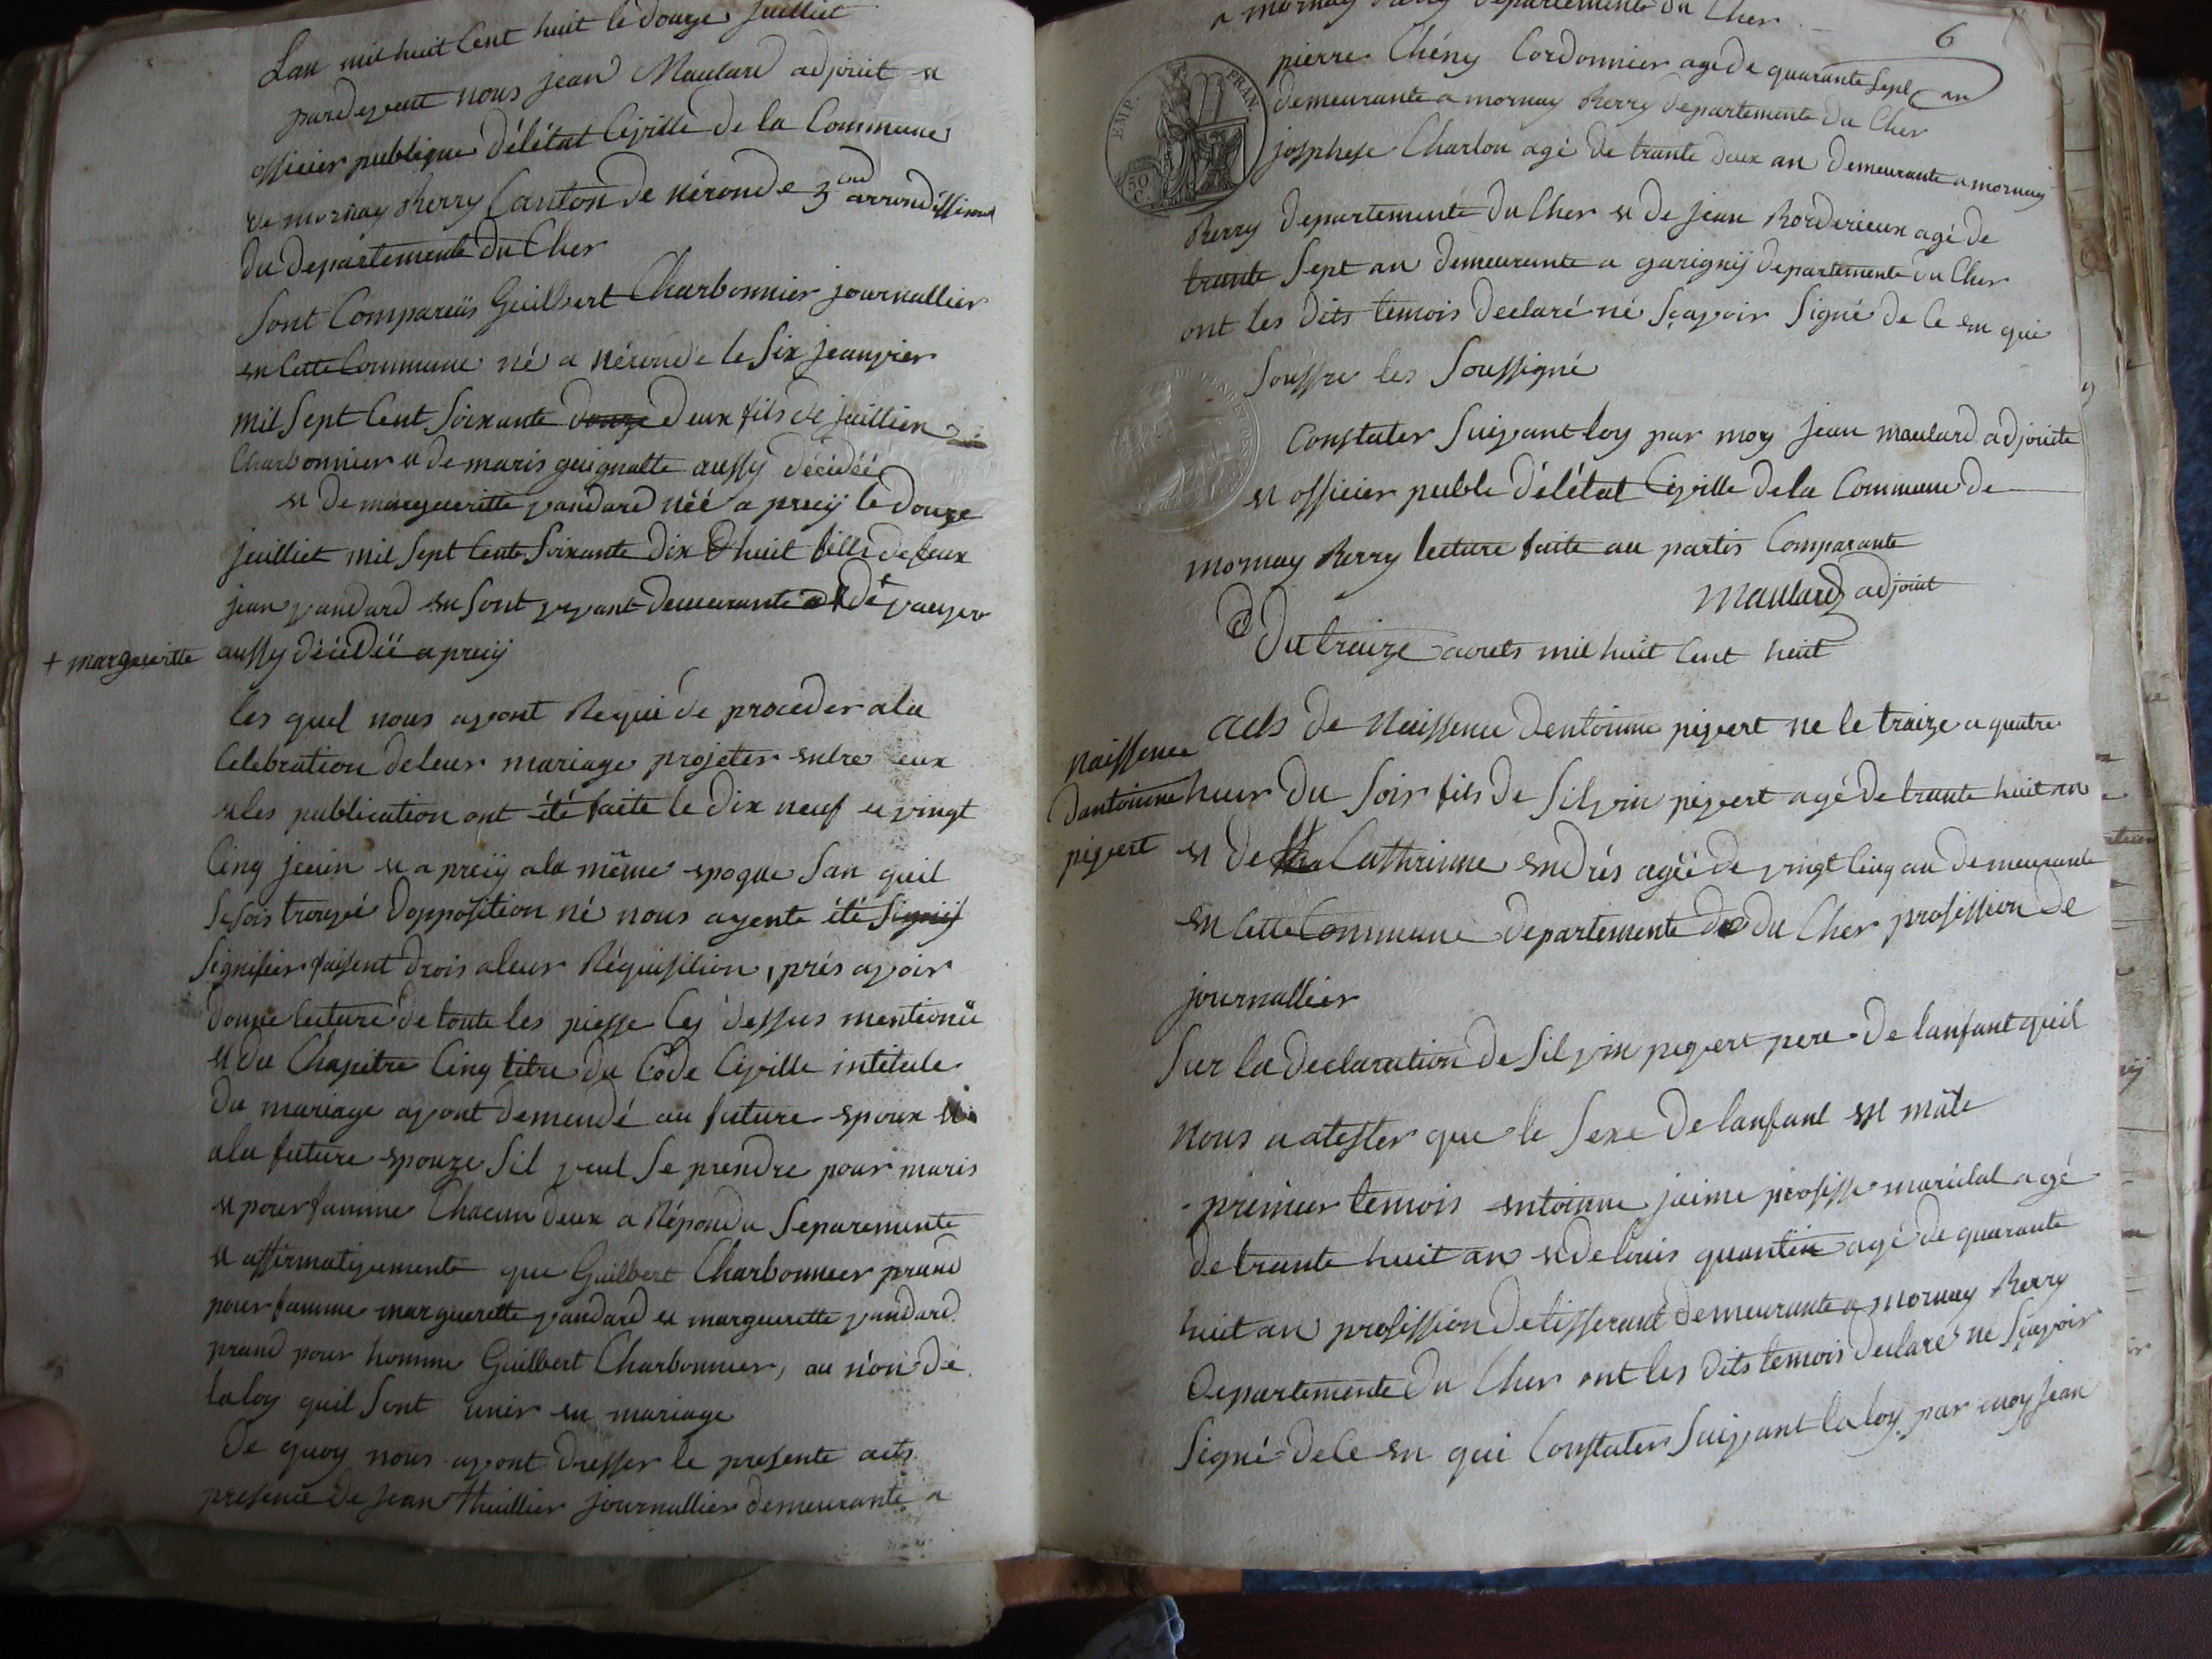 Lan mil huit Cent huit le douze Juilliet
pardevant nous jean Maulard adjoint et
officier publique délétat Civille de la Commune
de mornay Berry Canton de néronde 3eme arrondissiment
du departemente du Cher
Sont Comparuüs Guilbert Charbonnier journallier
en Cette Commune né a néronde le Six jeanvier
mil Sept Cent Soixante douze deux fils de juillien
Charbonnier et de maris guignalte aussy décidéé
et de margueritte vandard néé a precÿ le douze
juilliet mil Sept Cente Soixante dix & huit fille de feux
jean vandard en Sont vivant demeurante a + de vauver
+ margueritte
aussy décidéé a precÿ
les quel nous ayont Requi de proceder a la
Celebration de leur mariage projeter entre eux
et les publication ont été faite le dix neuf et vingt
Cinq jeuin et a precÿ a la même epoque San quil
Se Sois trouvé dopposition né nous ayente été Signiif
Signifier faisent drois a leur Réquisition, prés avoir
donne lecture de toute les piesse Cy dessus mentionnéé
et du Chapitre Cinq titre du Code Civille intitule
du mariage ayont demendé au future epoux et
a la future epouze Sil veul Se prendre pour maris
et pour famme Chacun deux a Répondu Separemente
et affirmativemente que Guilbert Charbonnier prand
pour famme marguerette vandard et marguerette vandard
prand pour homme Guilbert Charbonnier, au non de
la loy quil Sont unir en mariage
De quoy nous ayont dresser le presente acts
presence de Jean thuillier journallier demeurante a
a mornay Berry departemente du Cher
6
pierre Chény Cordonnier agé de quarante Sept an
demeurante a mornay Berry departemente du Cher
josphese Charlon agé de trante deux an demeurante a mornay
Berry departemente du Cher et de jean Borderieux agé de
trante Sept an demeurante a garignÿ departemente du Cher
ont les dits temois declaré né Sçavoir Signé de Ce en qui
Souffre les Soussigné
Constater Suivant loy par moy jean maulard adjointe
et officier puble délétat Civille de la Commune de
mornay Berry lecture faite au partis Comparante
Maulard adjoint
Du traize aouts mil huit Cent huit
naissence
dantoinne
pivert
acts de Naissence dentoinne pivert ne le traize a quatre
heur du Soir fils de Silvin pivert agé de trante huit an
et de Cathrinne endrés agéé de vingt Cinq an demeurante
en Cette Commune departemente de du Cher profession de
journallier
Sur la declaration de Silvin pivert pere de lanfant quil
nous a atester que le Sexe de lanfant est mâle
premier temois entoinne jaime profisse marichal agé
de trante huit an et de louis quantin agé de quarante
huit an profission de tisserant demeurante a mornay Berry
departemente du Cher ont les dits temois declaré ne Sçavoir
Signé de Ce en qui Constater Suivant la loy par moy Jean
EMP. FRAN.
50 C.